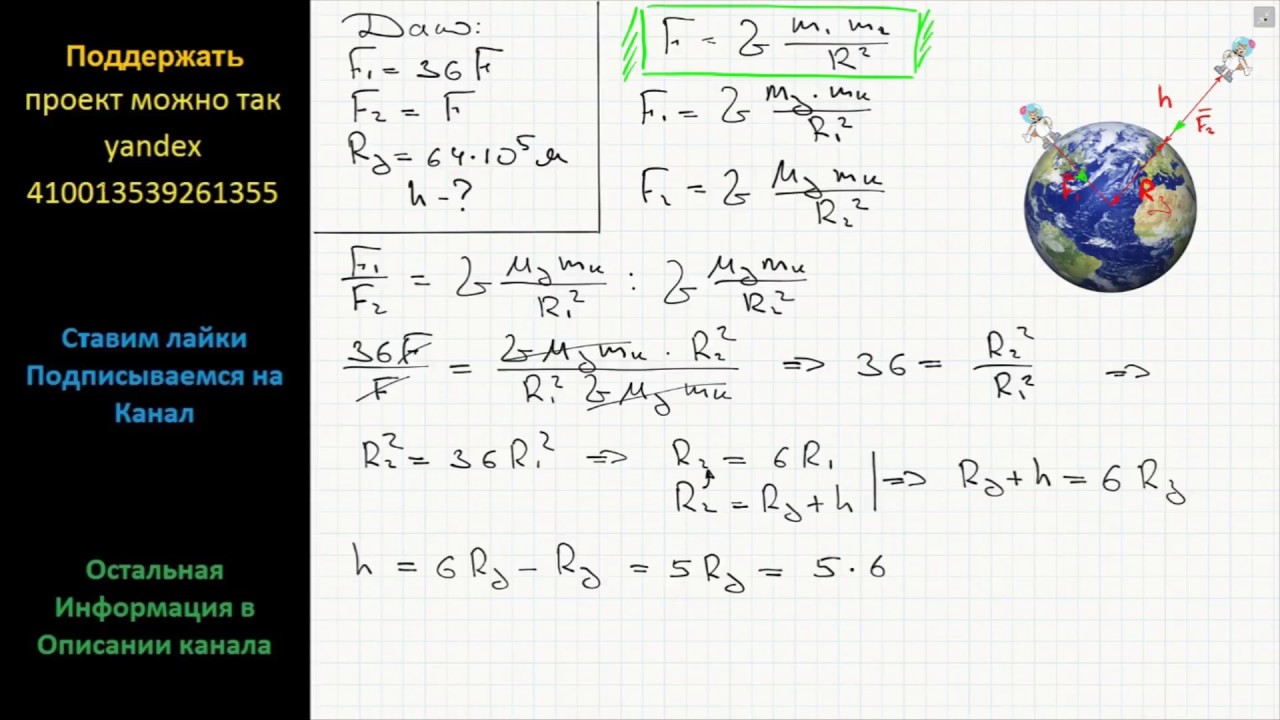 Поддержать
проект можно так
yandex
410013539261355
Ставим лайки
Подписываемся на
Канал
Остальная
Информация в
Описании канала
Дано:
F₁ = 36 F
F₂ = F
Rз = 64·10⁵ м
h - ?
F = G m₁ m₂ / R²
F₁ = G Mз · mк / R₁²
F₂ = G Mз mк / R₂²
F₁ / F₂ = G Mз mк / R₁² : G Mз mк / R₂²
36F / F = G Mз mк · R₂² / R₁² G Mз mк => 36 = R₂² / R₁² =>
R₂² = 36 R₁² => R₂ = 6 R₁
R₂ = Rз + h | => Rз + h = 6 Rз
h = 6 Rз - Rз = 5 Rз = 5 · 6
h
F₂
F₁
Rз